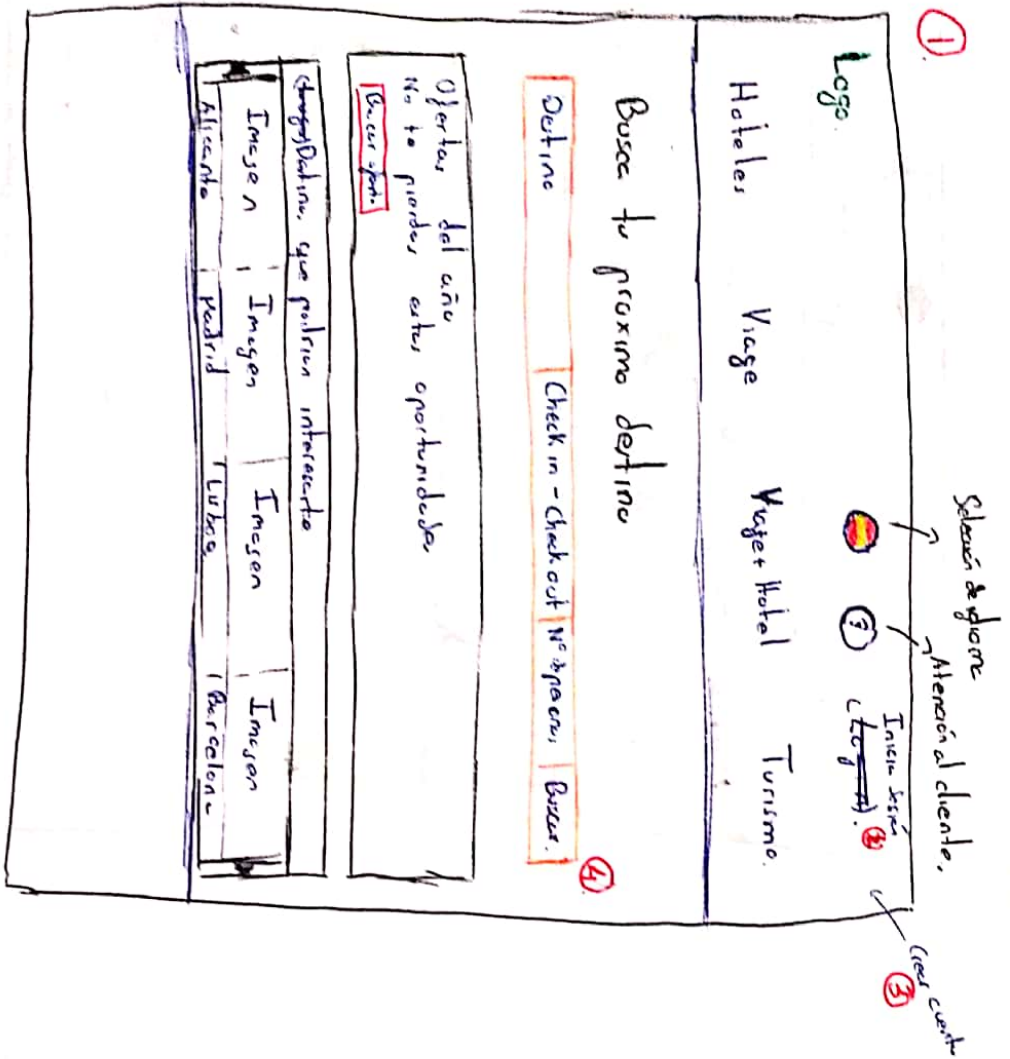 1.
Selección de idioma
Atención al cliente.
Crear cuenta
3
Logo.
?
Inicia sesión
2
Hoteles Viage Viaje+Hotel Turismo.
Busca tu proximo destino
4
Destino Check in - Check out Nº Buscar.
Ofertas del año
No te pierdas estas oportunidades
Buscar oferta
que podrian interesarte
Imagen Imagen Imagen Imagen
Alicante Madrid Lisboa Barcelona